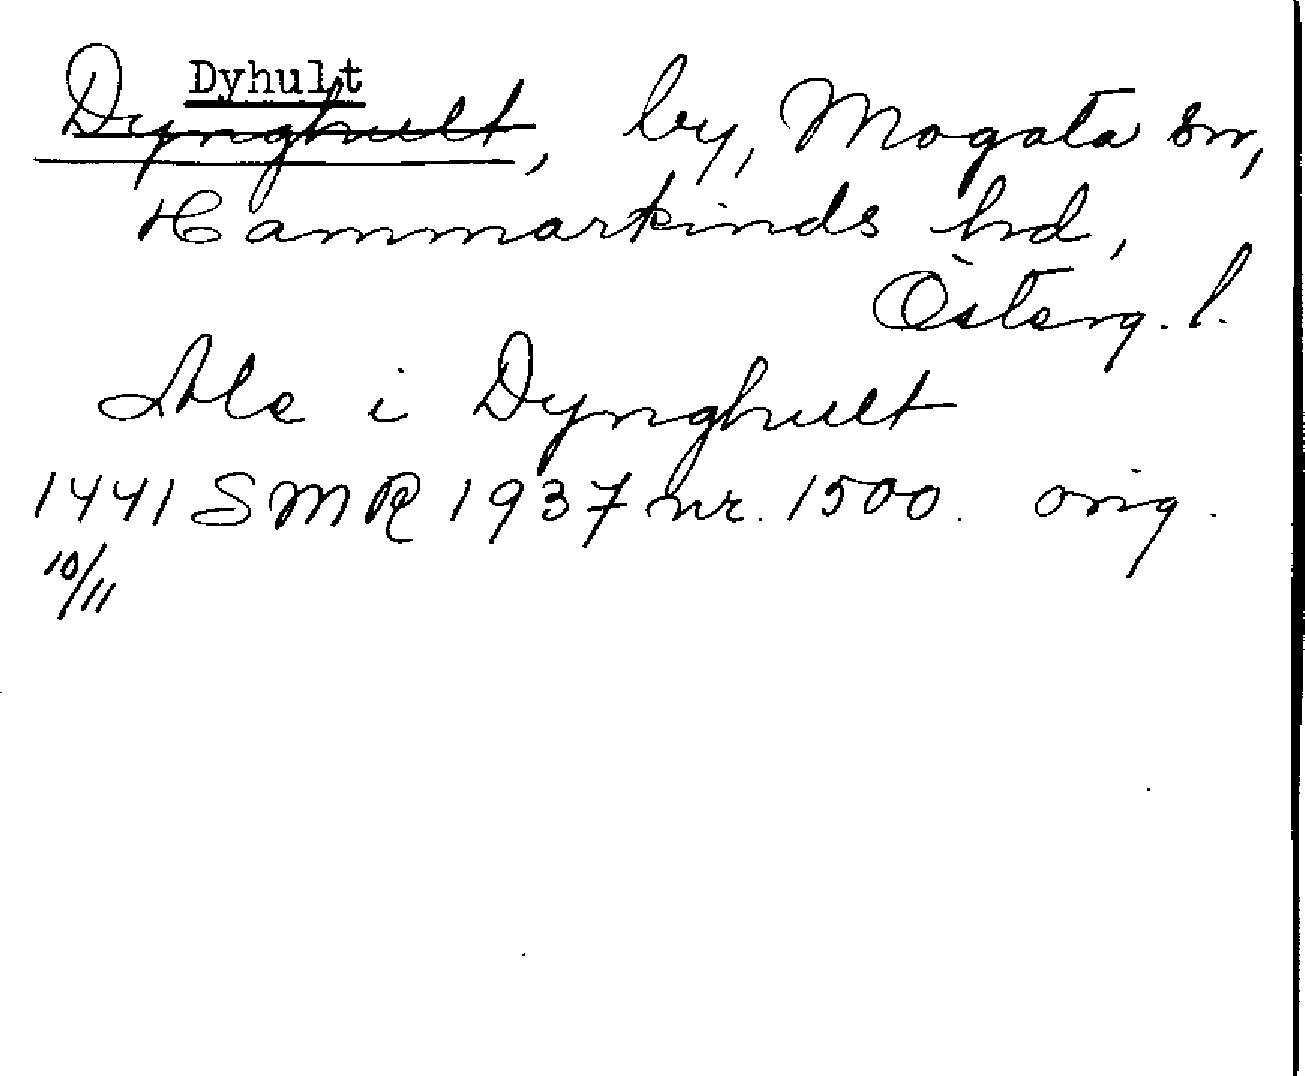 Dyhult
Dynghult, by, Mogata sn,
Hammarkinds hd,
Österg. l.
Abe i Dynghult
1441 SMR 1937 nr. 1500. orig.
10/11